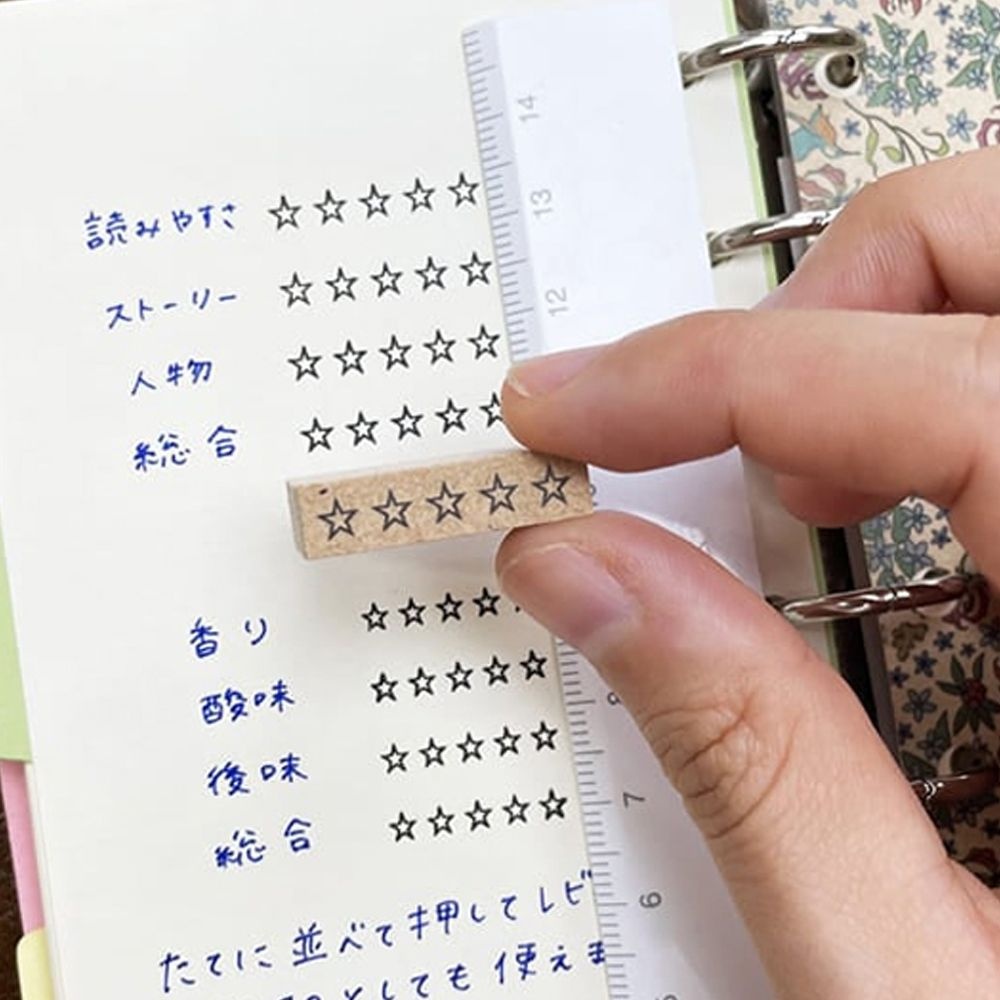 読みやすさ ☆☆☆☆☆
ストーリー ☆☆☆☆☆
人物 ☆☆☆☆☆
総合 ☆☆☆☆☆
☆☆☆☆☆
香り ☆☆☆☆
酸味 ☆☆☆☆☆
後味 ☆☆☆☆☆
総合 ☆☆☆☆☆
たてに並べて押してレビ
としても使えま
14
13
12
8
7
6